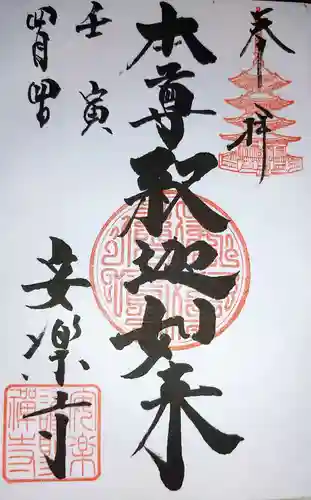 奉拝
本尊釈迦如来
壬寅
安楽寺